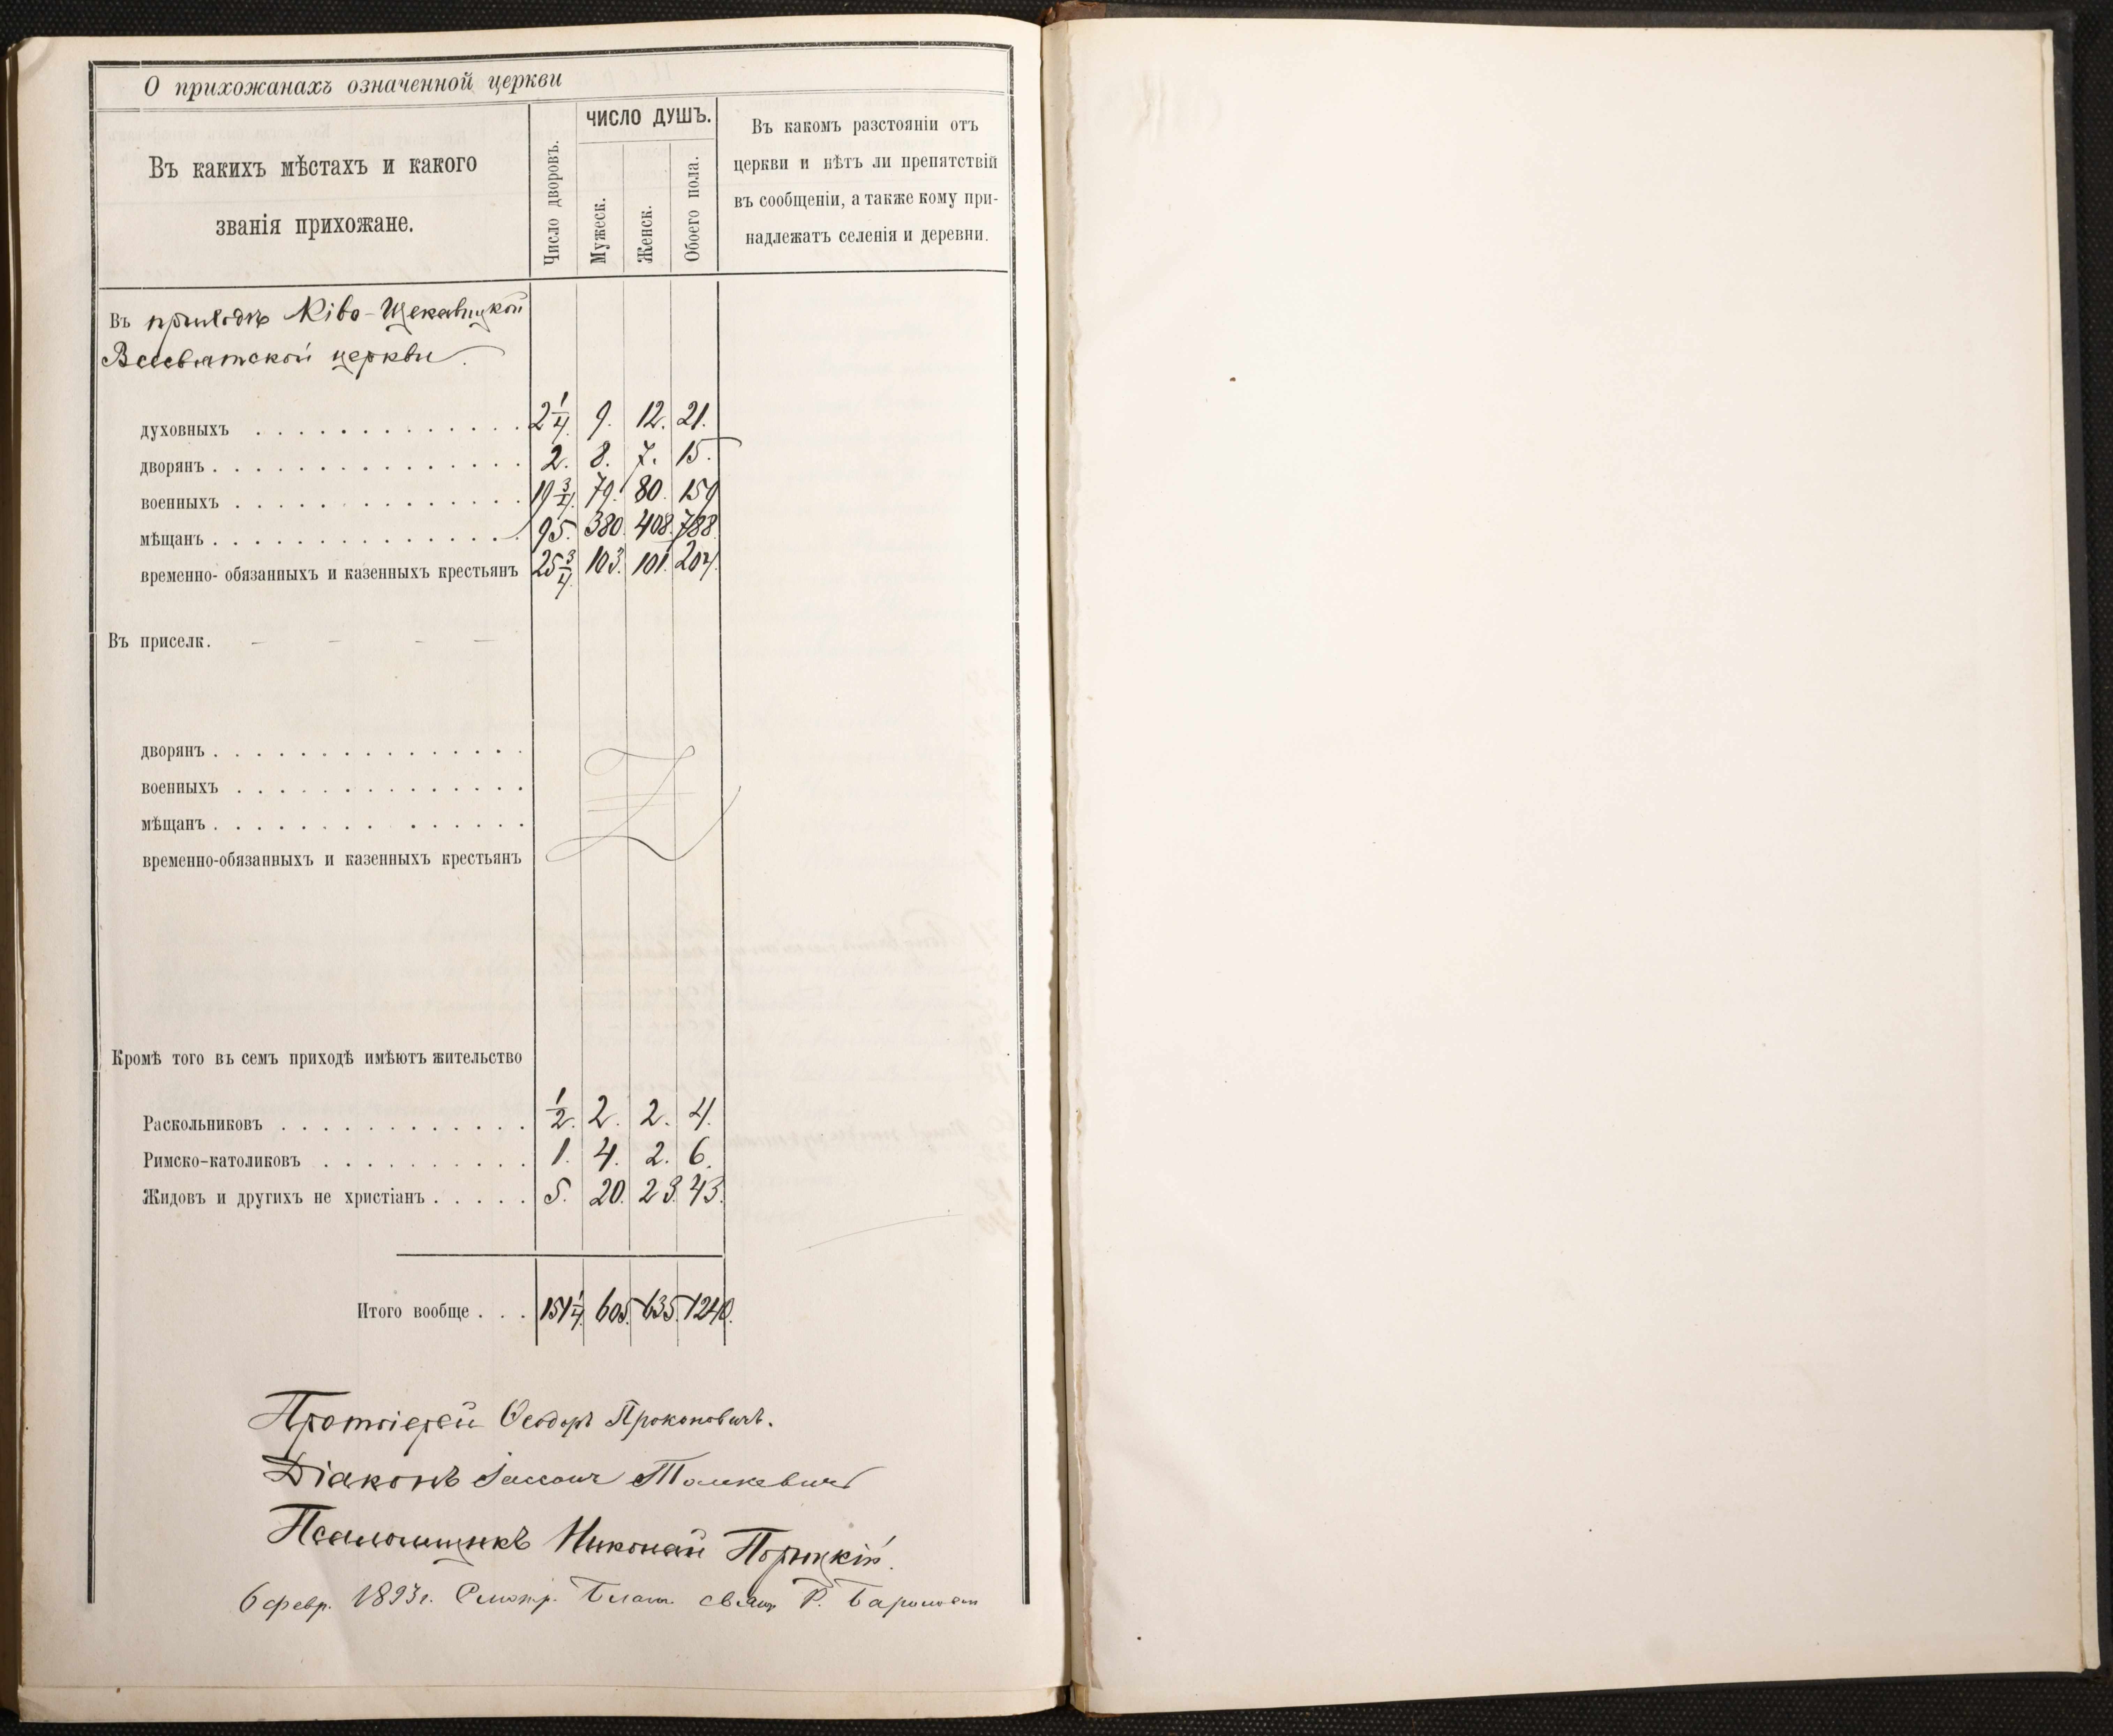 О прихожанахъ означенной церкви
Въ какихъ мѣстахъ и какого
званія прихожане.
Число дворовъ.
ЧИСЛО ДУШЪ.
Мужеск.
Женск.
Обоего пола.
Въ какомъ разстояніи отъ
церкви и нѣтъ ли препятствій
въ сообщеніи, а также кому при-
надлежатъ селенія и деревни.
Въ приходѣ Кіево-Щекавицкой
Всесвятской церкви.
духовныхъ . . . . . . . . . . . . . 2 1/4. 9. 12. 21.
дворянъ . . . . . . . . . . . . . . . 2. 8. 7. 15.
военныхъ . . . . . . . . . . . . . . 19 3/4. 79. 80. 159
мѣщанъ . . . . . . . . . . . . . . . 95. 380. 408. 788.
временно- обязанныхъ и казенныхъ крестьянъ 25 3/4. 103. 101. 204.
Въ приселк. — — — —
дворянъ . . . . . . . . . . . . . . .
военныхъ . . . . . . . . . . . . . .
мѣщанъ . . . . . . . . . . . . . . .
временно-обязанныхъ и казенныхъ крестьянъ
Кромѣ того въ семъ приходѣ имѣютъ жительство
Раскольниковъ . . . . . . . . . . . . 1/2. 2. 2. 4.
Римско-католиковъ . . . . . . . . . . 1. 4. 2. 6.
Жидовъ и другихъ не христіанъ . . . . . 5. 20. 23. 43.
Итого вообще . . . 151 1/4. 605. 635. 1240.
Протоіерей Ѳеодоръ Прокоповичъ.
Діаконъ Іассонъ
Псаломщикъ Николай Порицкій.
6 февр. 1893 г. Смотр. Благ. свящ. Р.